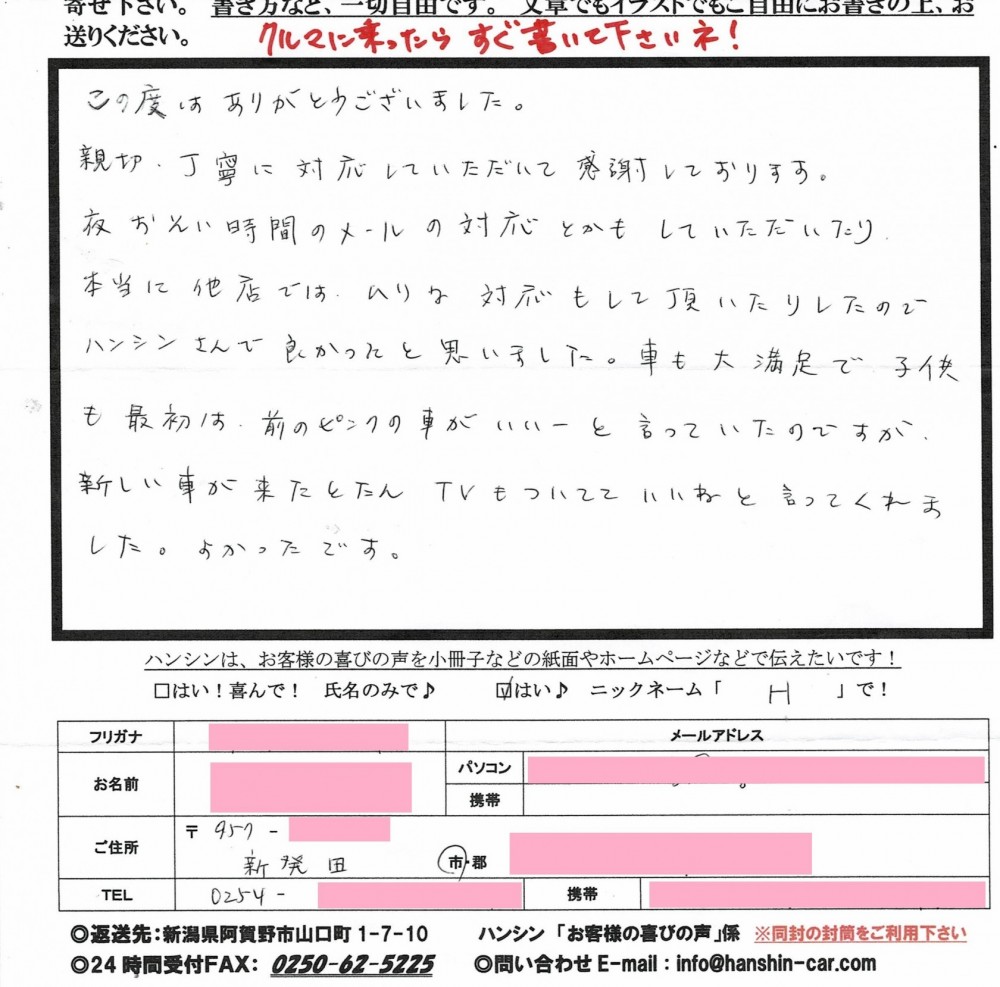 寄せ下さい。 書き方など、一切自由です。 文章でもイラストでもご自由にお書きの上、お
送りください。 クルマに乗ったら すぐ書いて下さいネ!
この度は ありがとうございました。
親切、丁寧に 対応していただいて 感謝しております。
夜 おそい時間のメールの対応とかも していただいたり
本当に 他店では、ムリな 対応もして頂いたりしたので
ハンシンさんで 良かったと思いました。車も 大満足で 子供
も 最初は、前のピンクの車がいいーと 言っていたのですが、
新しい車が来たとたん TVもついてて いいねと言ってくれま
した。よかったです。
ハンシンは、お客様の喜びの声を小冊子などの紙面やホームページなどで伝えたいです!
□はい!喜んで! 氏名のみで♪ ☑はい♪ ニックネーム「 H 」で!
フリガナ メールアドレス
お名前 パソコン
携帯
ご住所 〒957-
新発田 市・郡
TEL 0254- 携帯
◎返送先:新潟県阿賀野市山口町 1-7-10 ハンシン 「お客様の喜びの声」係 ※同封の封筒をご利用下さい
◎24 時間受付FAX: 0250-62-5225 ◎問い合わせ E-mail : info@hanshin-car.com